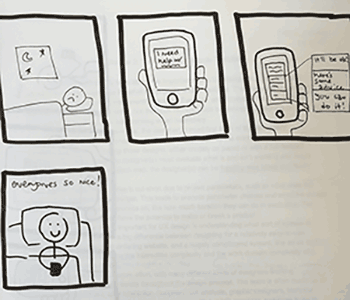 I need
help w/
It'll be ok!
Here's
some
advice
you can
do it!
everyones so nice!